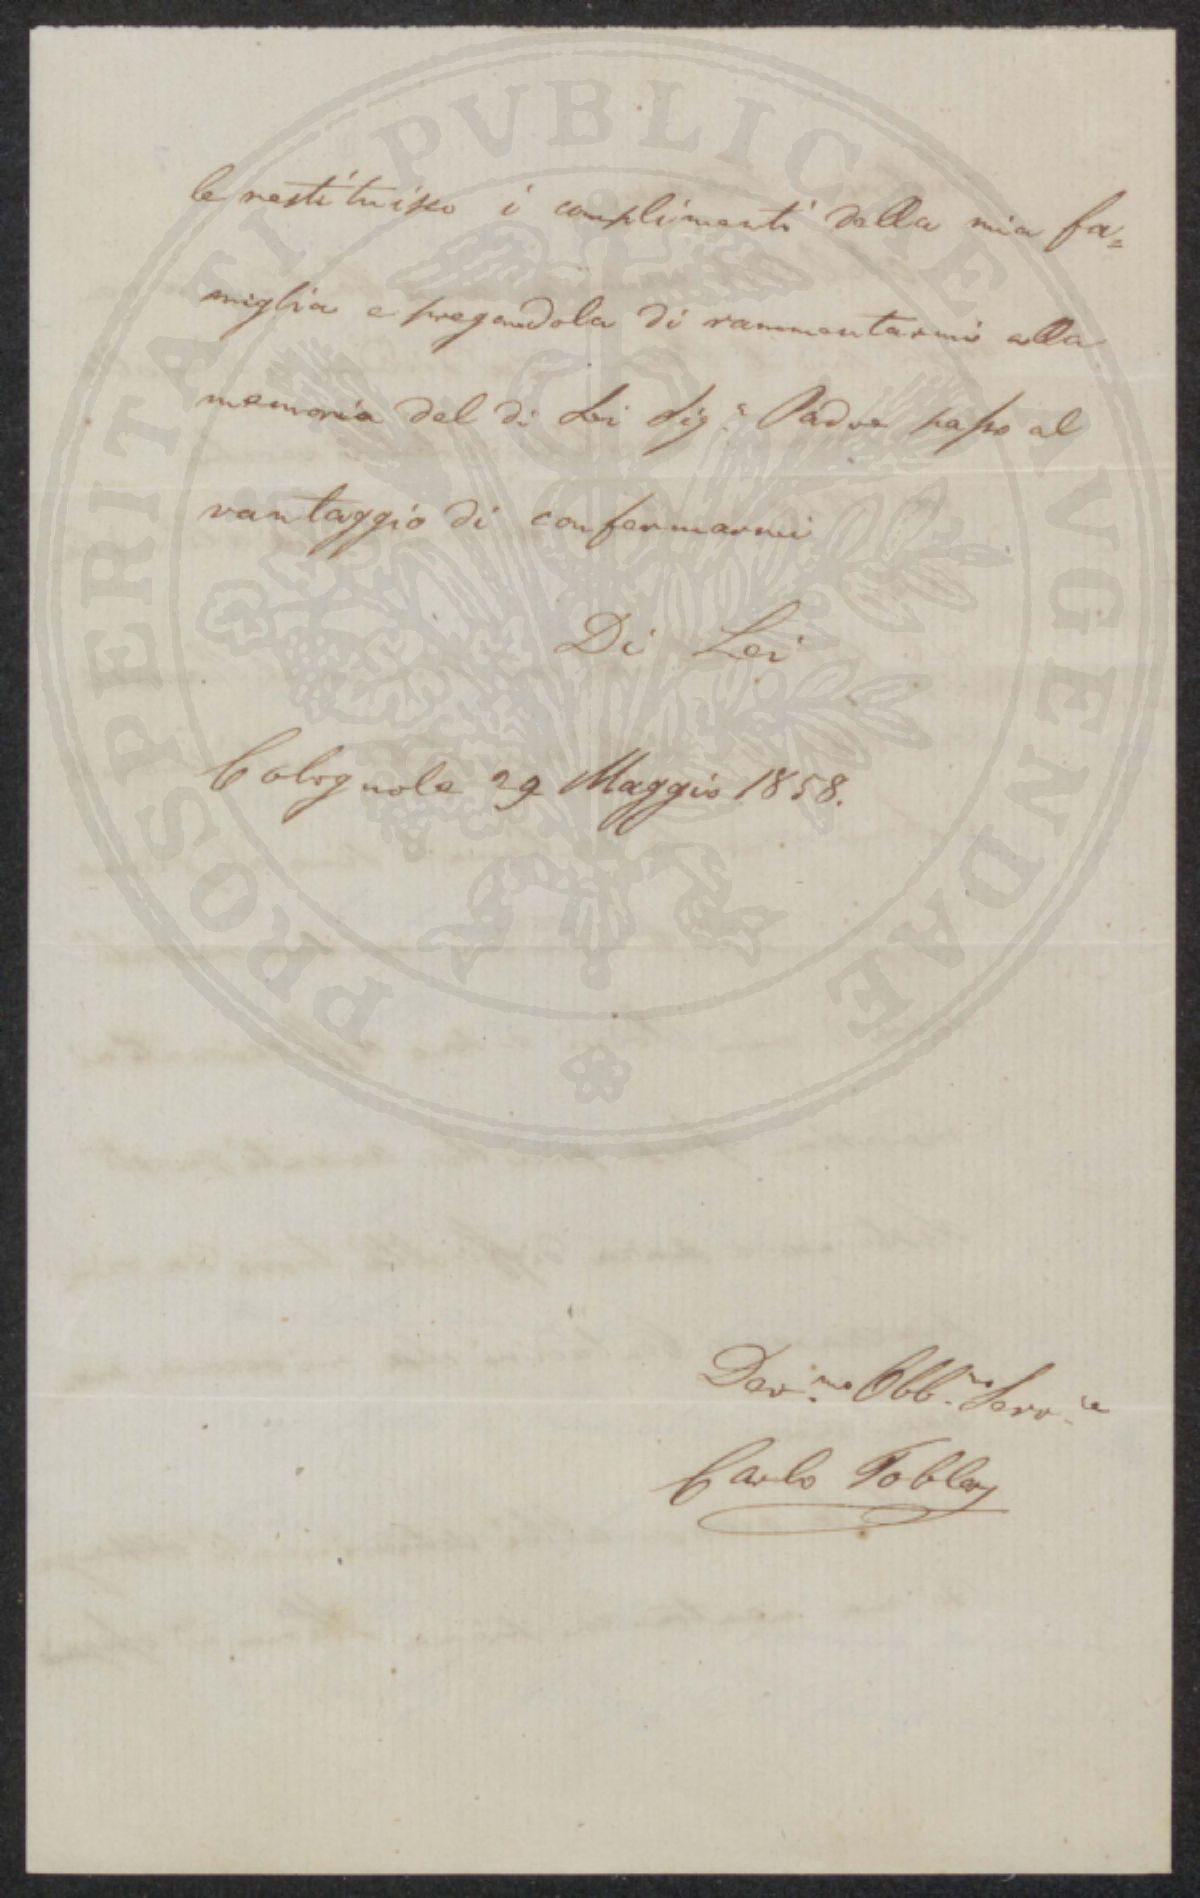 PROSPERITATI PVBLICAE AVGENDAE
le restituisco i complimenti della mia fa=
miglia e pregandola di rammentarmi alla
memoria del di Lei Sig.ʳ Padre passo al
vantaggio di confermarmi
Di Lei
Colognole 29 Maggio 1858.
Dev.mo Obb.mo Serv.re
Carlo Tobler